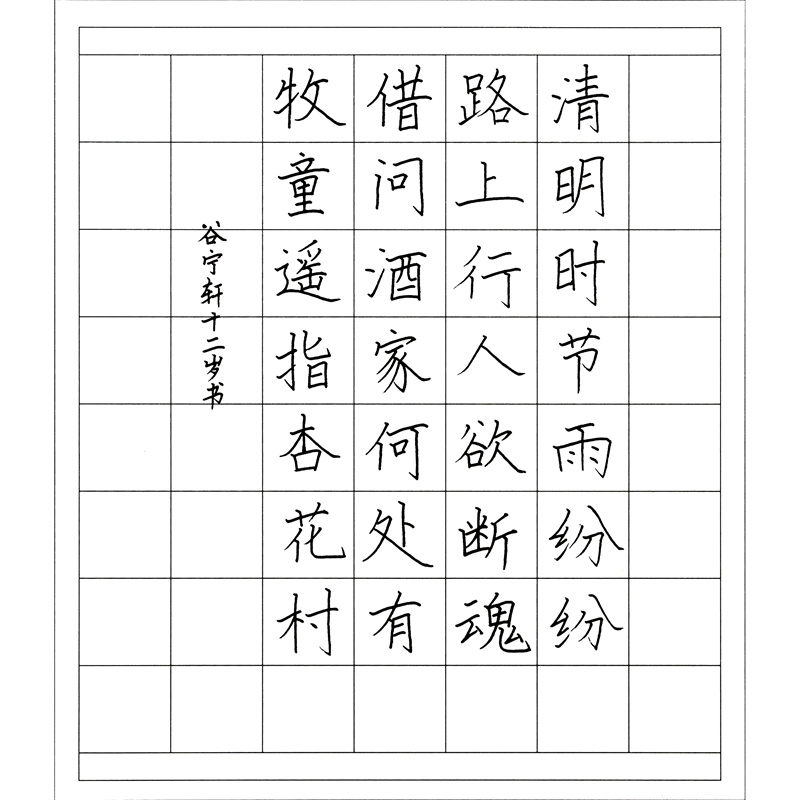 清明时节雨纷纷
路上行人欲断魂
借问酒家何处有
牧童遥指杏花村
谷宁轩十二岁书